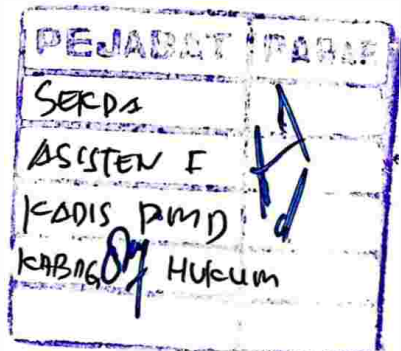 PEJABAT PARAF
SEKDA
ASISTEN I
KADIS PMD
KABAG HUKUM